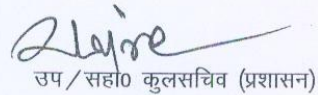 उप/सहा0 कुलसचिव (प्रशासन)